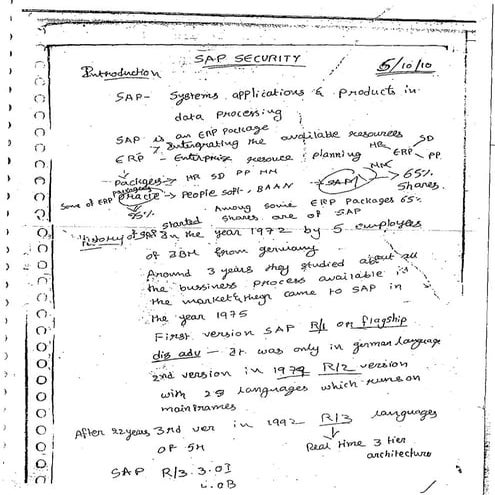 SAP SECURITY
5/10/10
Introduction
SAP- Systems applications & Products in
data processing
SAP is an ERP Package
7 Integrating the available resources
ERP - Enterprise resource planning
HR SD
ERP PP
MM
Packages → HR SD PP MM
Some of ERP packages
Oracle → People soft, BAAN
SAP → 65% Shares.
35%
Among some ERP Packages 65%
shares are of SAP
History of SAP started In the year 1972 by 5 employees
of IBM from germany
Around 3 years they studied about all
the bussiness process available in
the market & they came to SAP in
the year 1975
First version SAP R/1 or flagship
dis adv - It was only in german language
2nd version in 1979 R/2 version
with 28 languages which runs on
mainframes
After 22 years 3rd ver in 1992 R/3 languages
OF 54
Real time 3 tier
architecture
SAP R/3 3.0I
4.0B